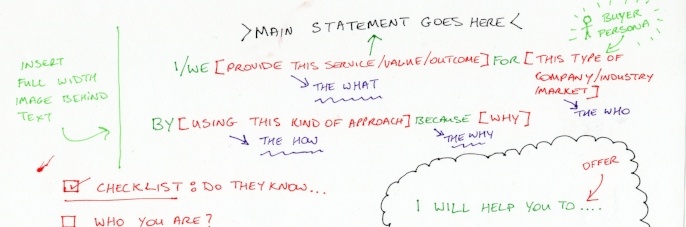 >MAIN STATEMENT GOES HERE<
BUYER
PERSONA
INSERT
FULL WIDTH
IMAGE BEHIND
TEXT
I/WE [PROVIDE THIS SERVICE/VALUE/OUTCOME] FOR [THIS TYPE OF
COMPANY/INDUSTRY
/MARKET]
THE WHAT
THE WHO
BY [USING THIS KIND OF APPROACH] BECAUSE [WHY]
THE HOW
THE WHY
CHECKLIST: DO THEY KNOW...
WHO YOU ARE?
OFFER
I WILL HELP YOU TO ....